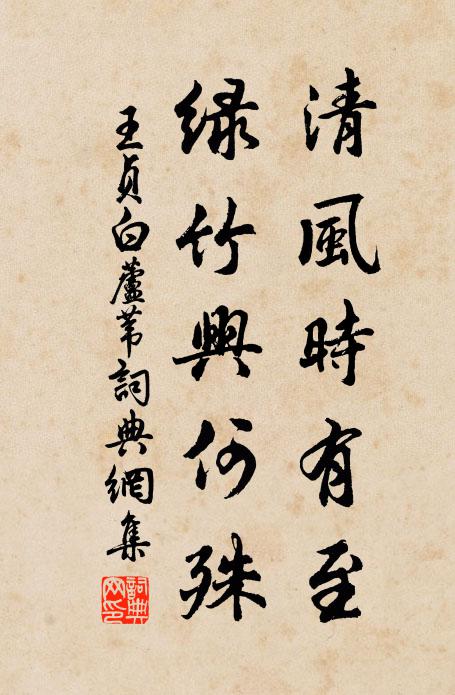 清風時有至
緑竹興何殊
王貞白蘆葦詞典網集
詞典網印